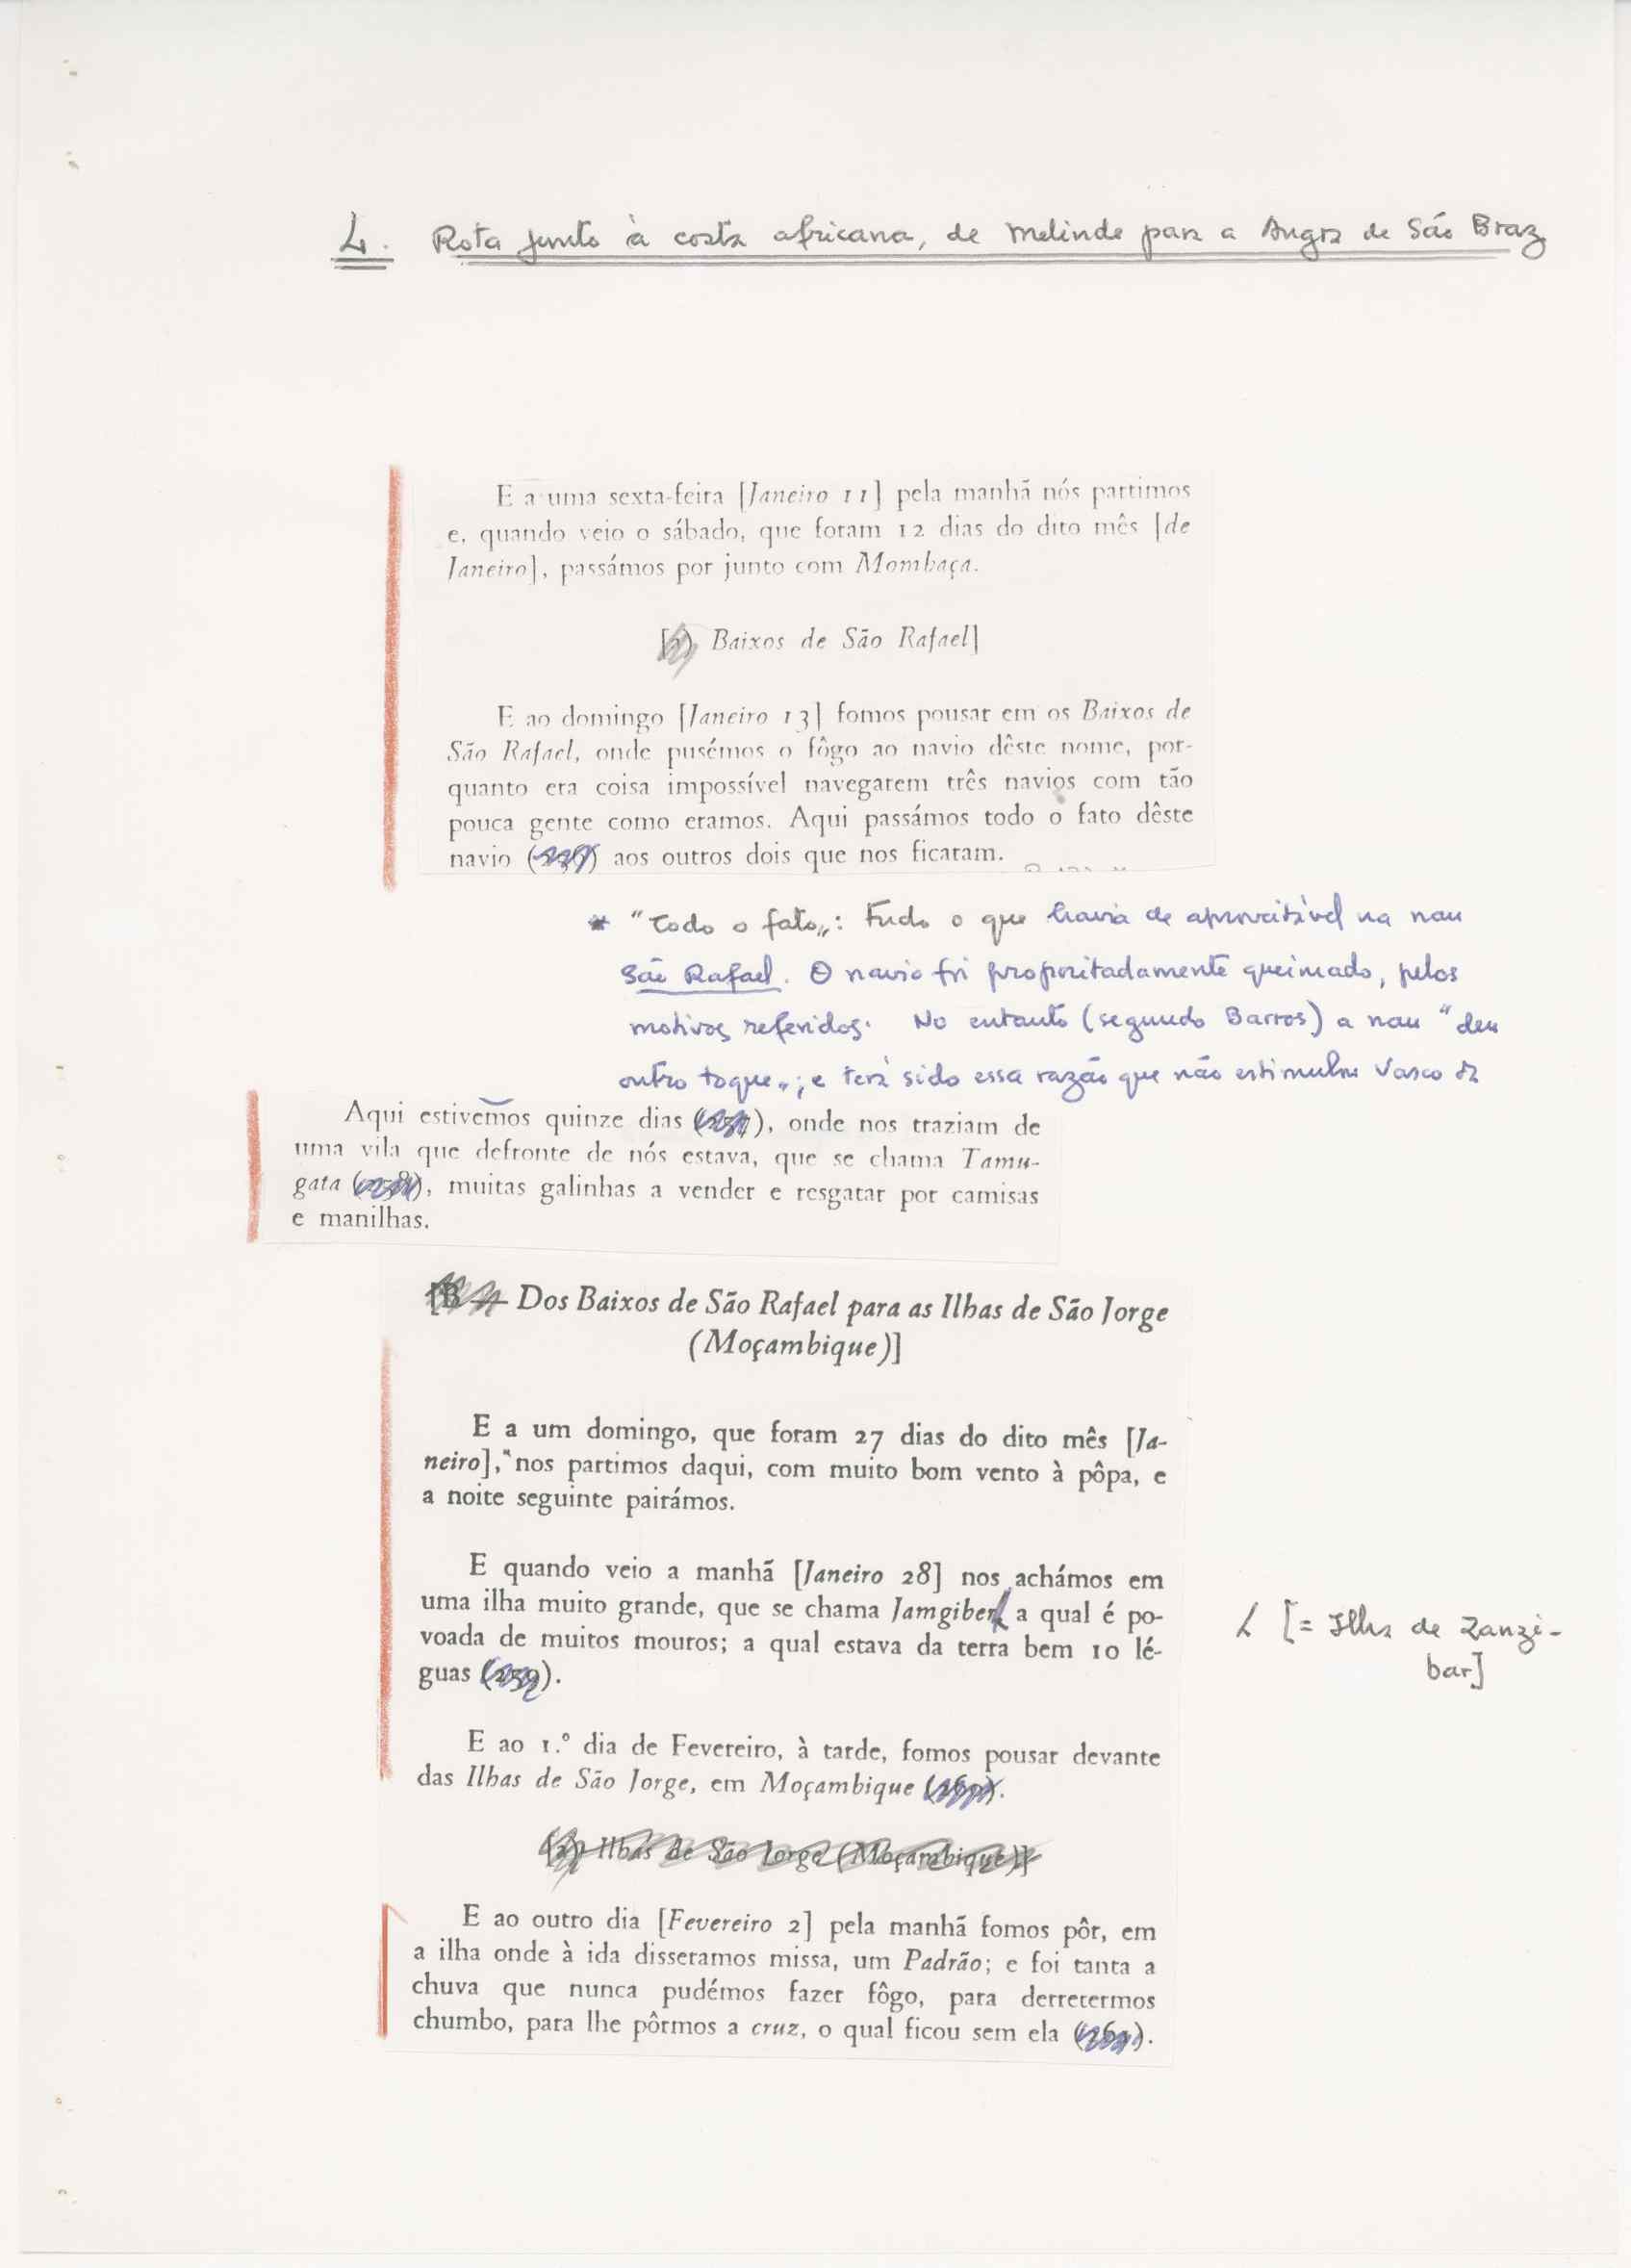 4. Rota junto à costa africana, de Melinde para a Angra de São Braz
E a uma sexta-feira [Janeiro 11] pela manhã nós partimos
e, quando veio o sábado, que foram 12 dias do dito mês [de
Janeiro], passámos por junto com Mombaça.
Baixos de São Rafael]
E ao domingo [Janeiro 13] fomos pousar em os Baixos de
São Rafael, onde pusémos o fôgo ao navio dêste nome, por-
quanto era coisa impossível navegarem três navios com tão
pouca gente como eramos. Aqui passámos todo o fato dêste
navio aos outros dois que nos ficaram.
* "Todo o fato": Tudo o que havia de aproveitável na nau
São Rafael. O navio foi propositadamente queimado, pelos
motivos referidos. No entanto (segundo Barros) a nau "deu
outro toque"; e terá sido essa razão que não estimulou Vasco da
Aqui estivemos quinze dias (237), onde nos traziam de
uma vila que defronte de nós estava, que se chama Tamu-
gata (238), muitas galinhas a vender e resgatar por camisas
e manilhas.
[B — Dos Baixos de São Rafael para as Ilhas de São Jorge
(Moçambique)]
E a um domingo, que foram 27 dias do dito mês [Ja-
neiro], nos partimos daqui, com muito bom vento à pôpa, e
a noite seguinte pairámos.
E quando veio a manhã [Janeiro 28] nos achámos em
uma ilha muito grande, que se chama Jamgiber, a qual é po-
voada de muitos mouros; a qual estava da terra bem 10 lé-
guas (239).
[= Ilha de Zanzi-
bar]
E ao 1.º dia de Fevereiro, à tarde, fomos pousar devante
das Ilhas de São Jorge, em Moçambique (260).
Ilhas de São Jorge (Moçambique)]
E ao outro dia [Fevereiro 2] pela manhã fomos pôr, em
a ilha onde à ida disseramos missa, um Padrão; e foi tanta a
chuva que nunca pudémos fazer fôgo, para derretermos
chumbo, para lhe pôrmos a cruz, o qual ficou sem ela (261).